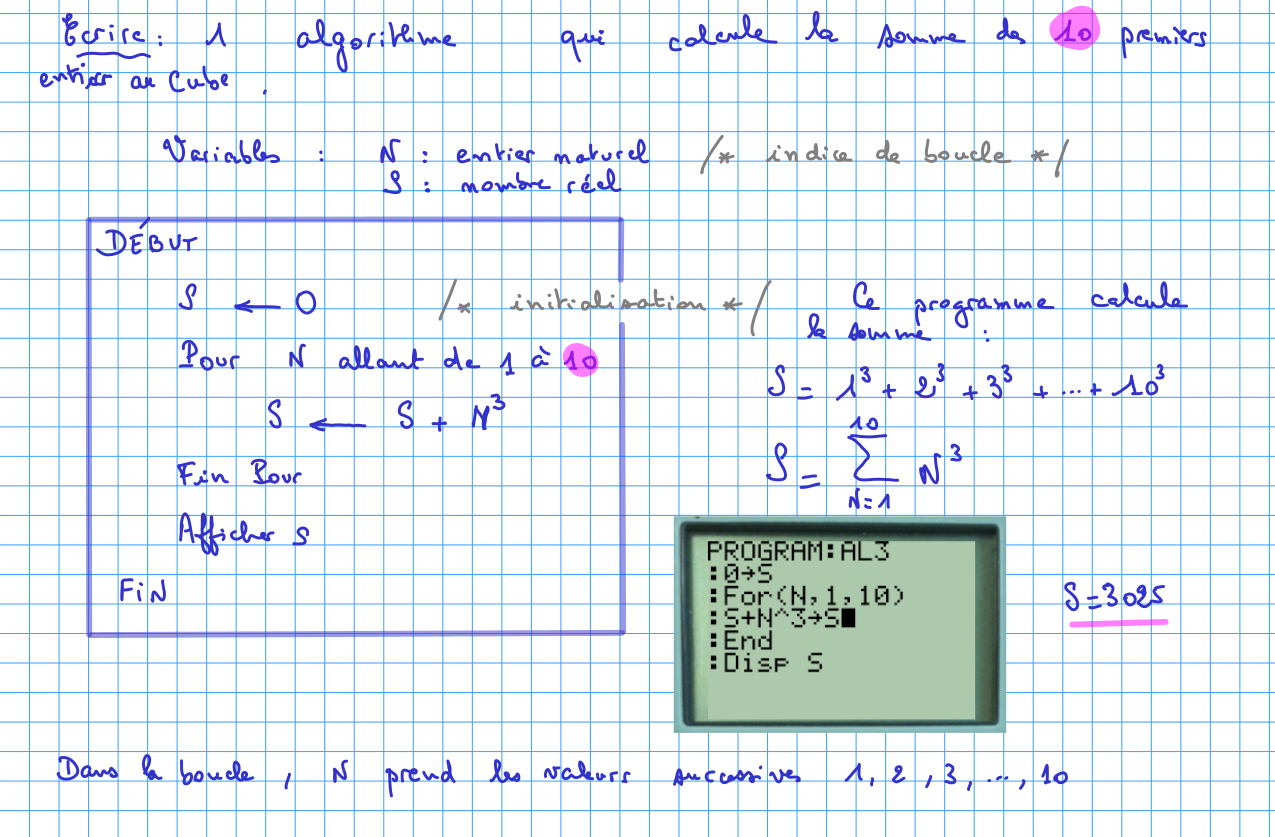 Ecrire : 1 algorithme qui calcule la somme des 10 premiers
entiers au cube.
Variables : N : entier naturel /* indice de boucle */
S : nombre réel
DÉBUT
S ← 0 /* initialisation */
Pour N allant de 1 à 10
S ← S + N³
Fin Pour
Afficher S
FiN
Ce programme calcule
la somme :
S = 1³ + 2³ + 3³ + ... + 10³
10
S = ∑ N³
N=1
PROGRAM:AL3
:0→S
:For(N,1,10)
:S+N^3→S
:End
:Disp S
S=3025
Dans la boucle, N prend les valeurs successives 1, 2, 3, ..., 10